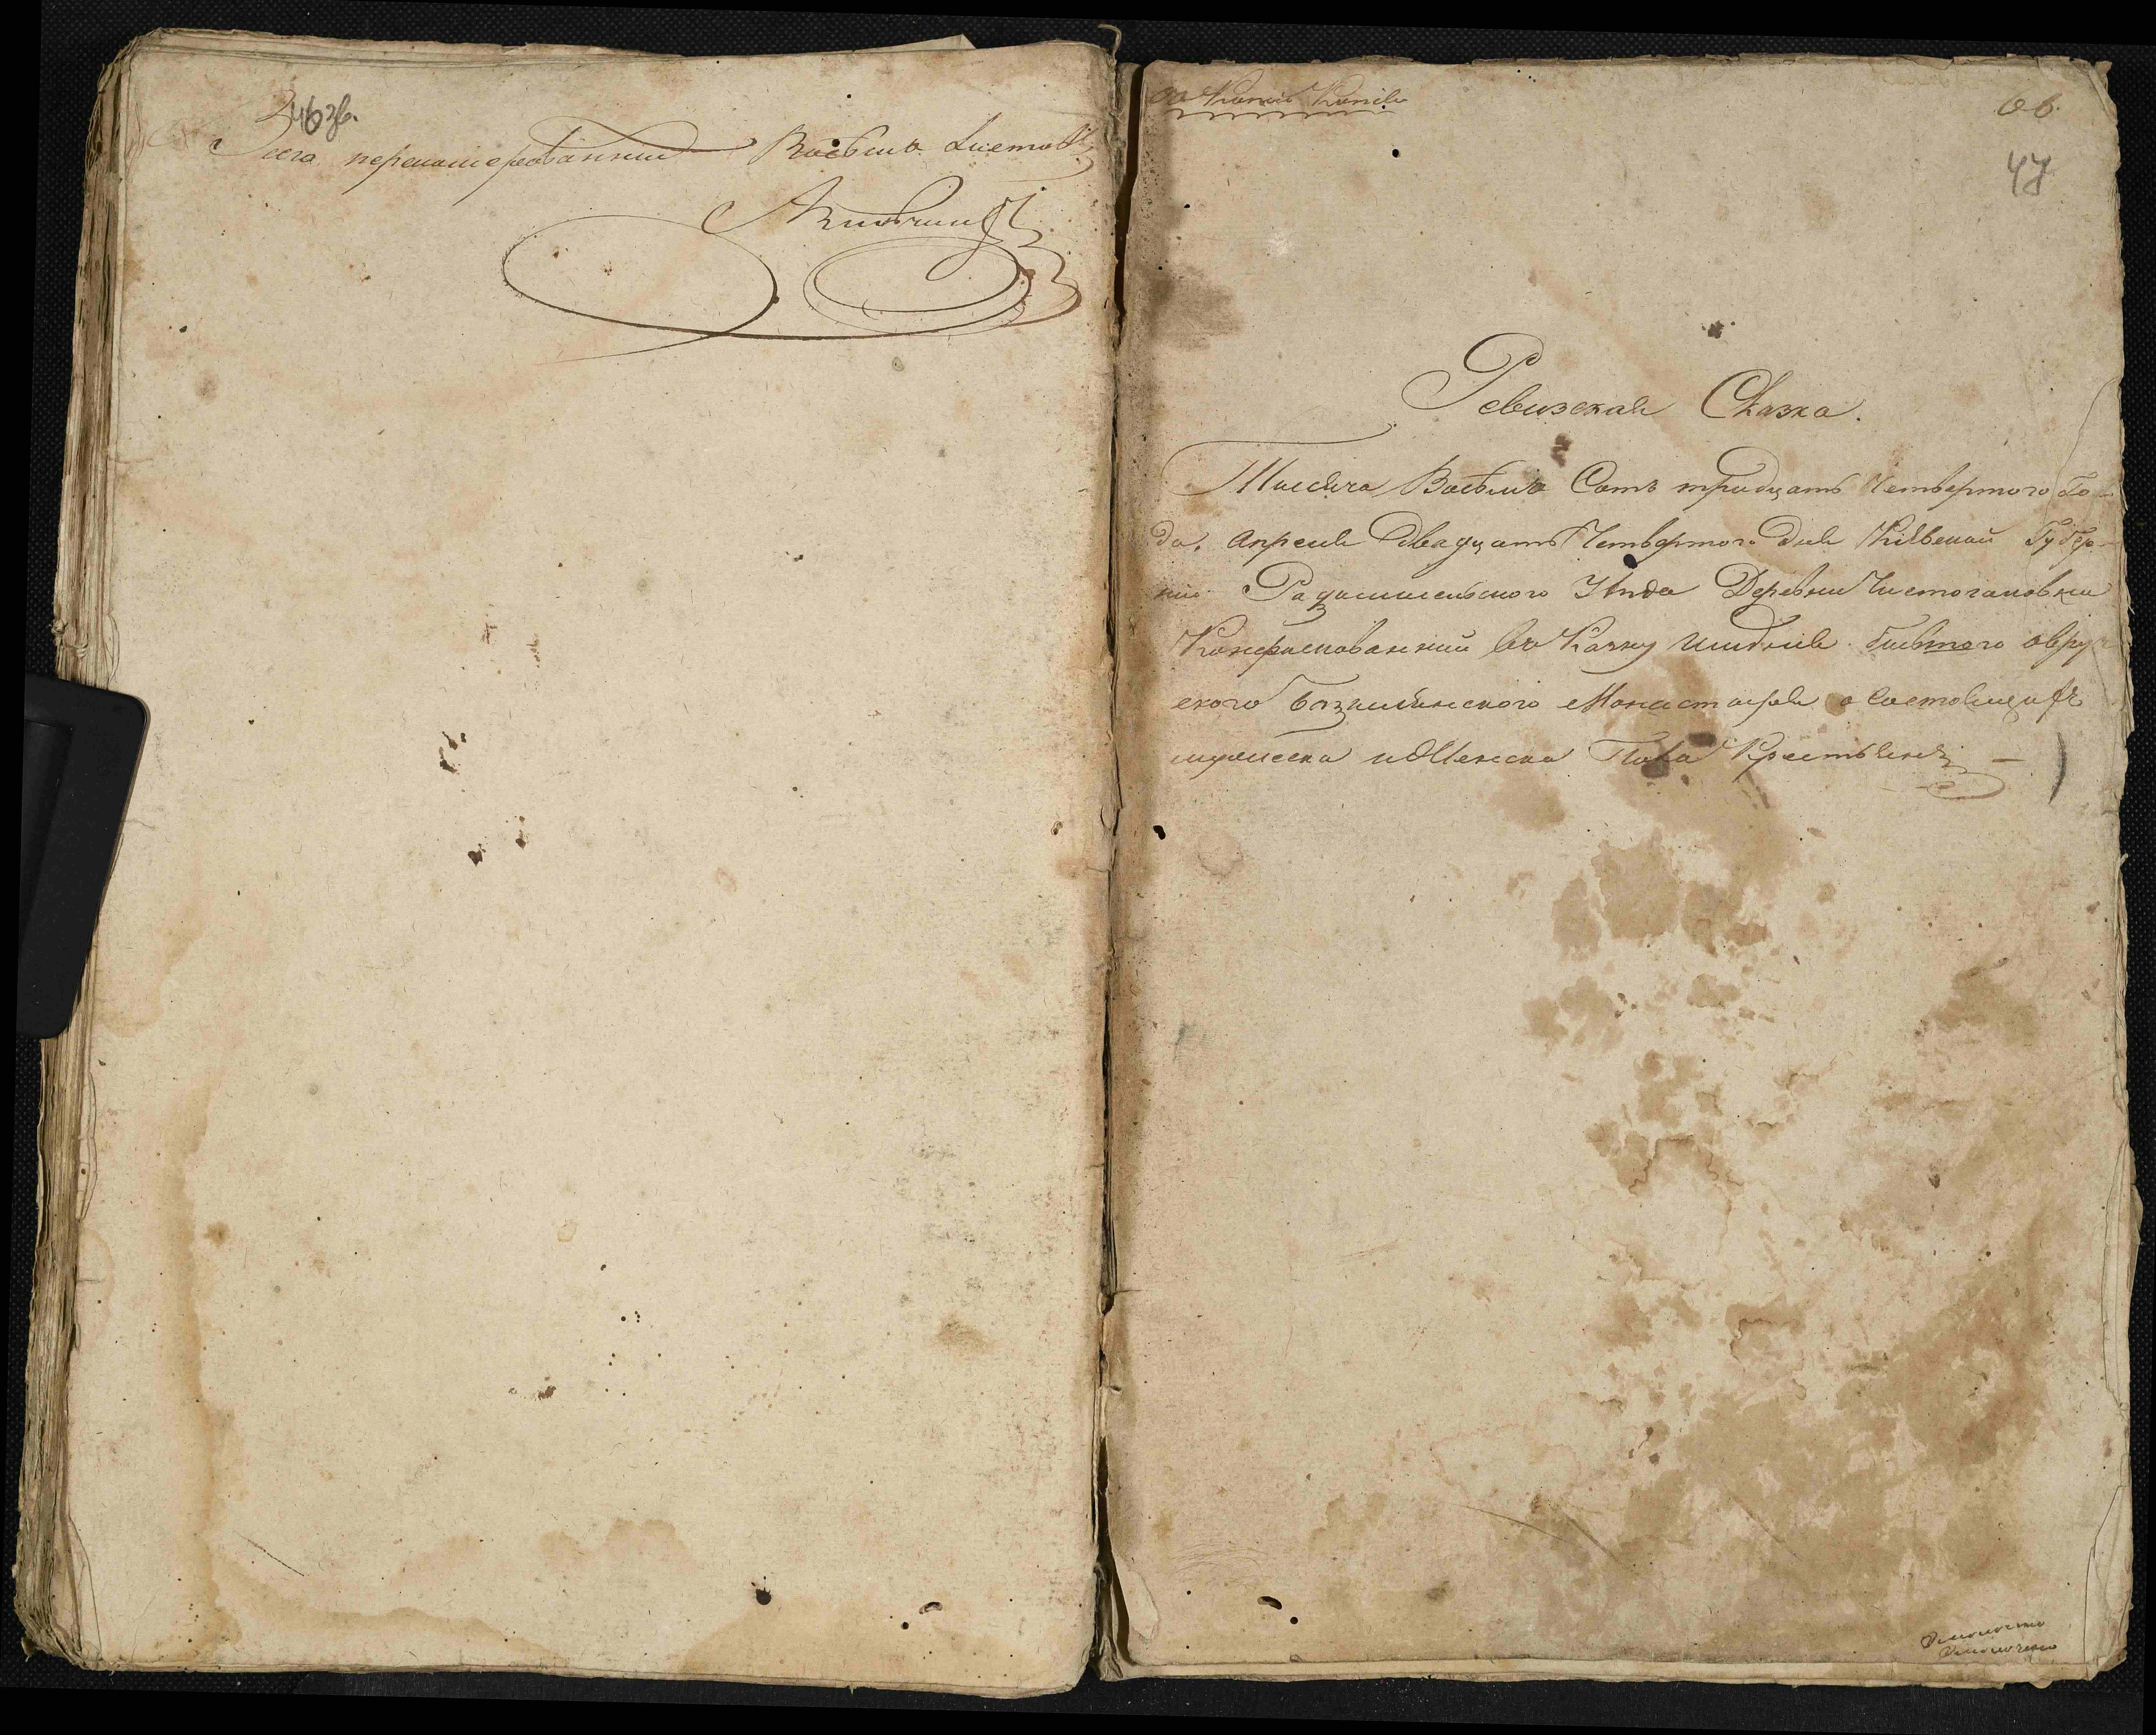 46 зв.
Всего перенумерованных Восьмъ Листовъ
66.
47
Ревизская Сказка.
Тисяча Восьмъ Сотъ тридцать Четвертого Го-
да, Апреля двадцать Четвертого дня Кіевской Губер-
ніи Радомисльского Уезда Деревни Чистогаловки
Конфискованний въ Казну имения бывшого овруч
ского Базилианского Монастыря о состоящихъ
мужеска и Женска Пола Крестьянъ —